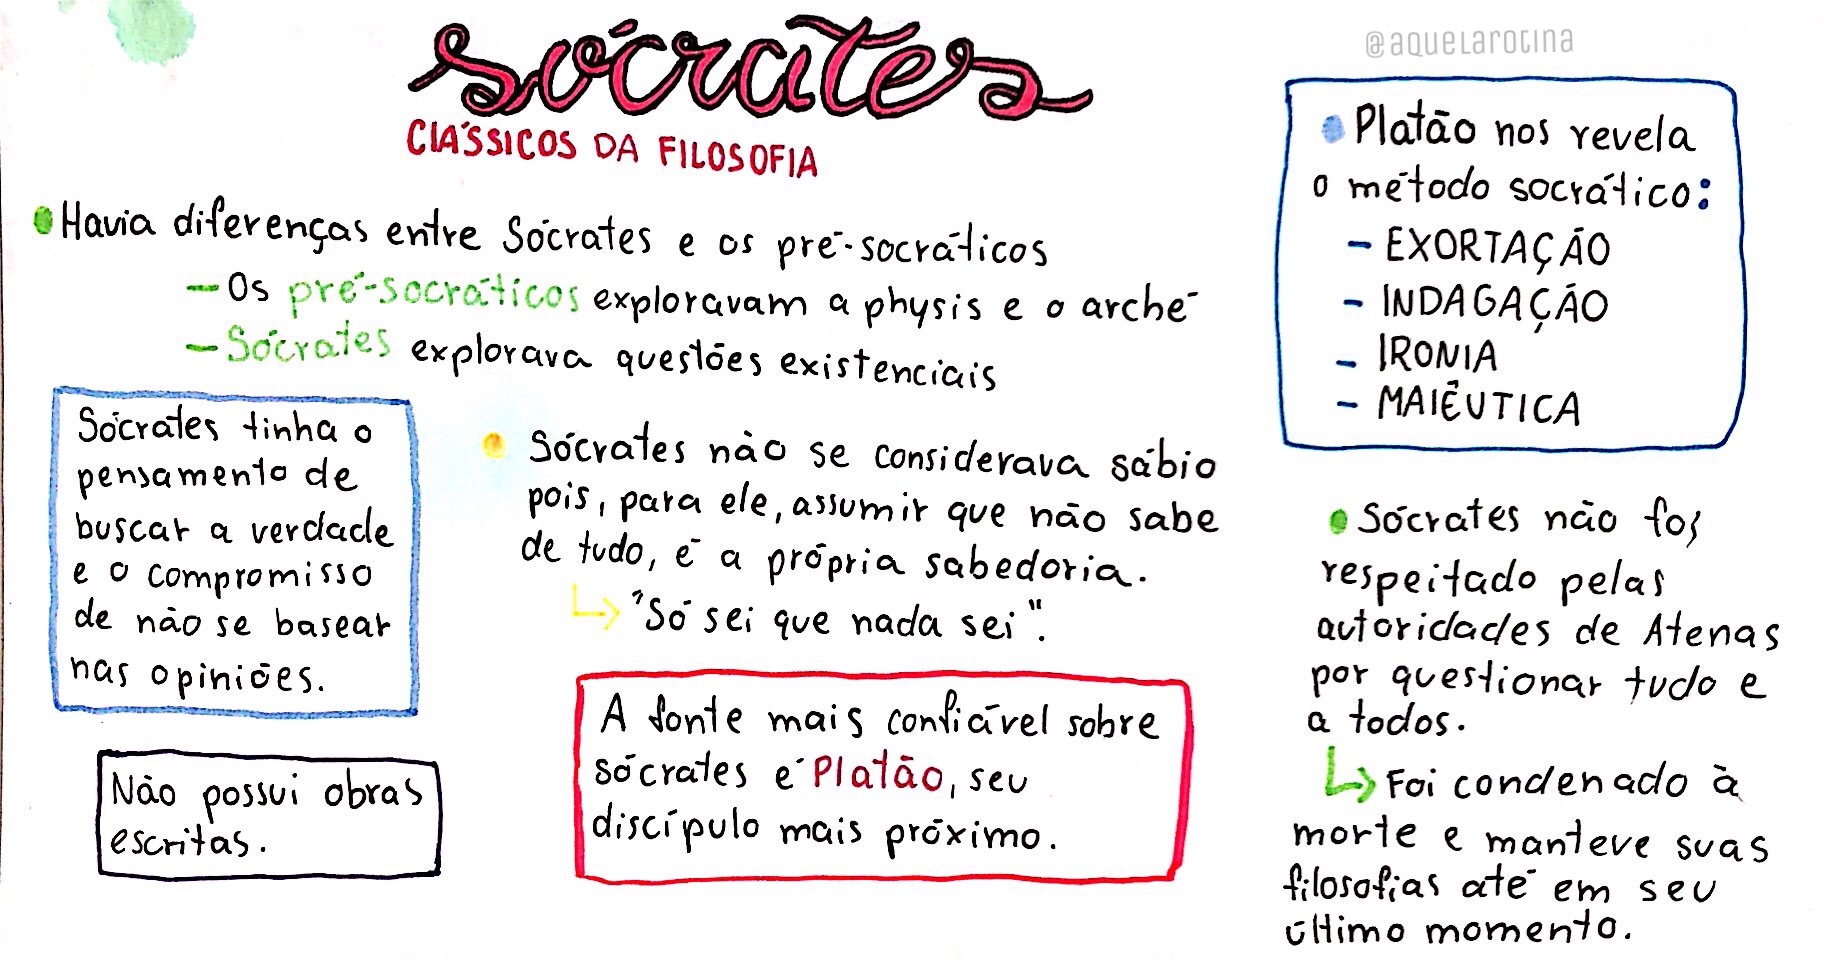 Sócrates
CLÁSSICOS DA FILOSOFIA
@aquelarotina
Havia diferenças entre Sócrates e os pré-socráticos
- Os pré-socráticos exploravam a physis e o arché
- Sócrates explorava questões existenciais
Sócrates tinha o
pensamento de
buscar a verdade
e o compromisso
de não se basear
nas opiniões.
Não possui obras
escritas.
Sócrates não se considerava sábio
pois, para ele, assumir que não sabe
de tudo, é a própria sabedoria.
"Só sei que nada sei".
A fonte mais confiável sobre
sócrates é Platão, seu
discípulo mais próximo.
Platão nos revela
o método socrático:
- EXORTAÇÃO
- INDAGAÇÃO
- IRONIA
- MAIÊUTICA
Sócrates não foi
respeitado pelas
autoridades de Atenas
por questionar tudo e
a todos.
Foi condenado à
morte e manteve suas
filosofias até em seu
último momento.